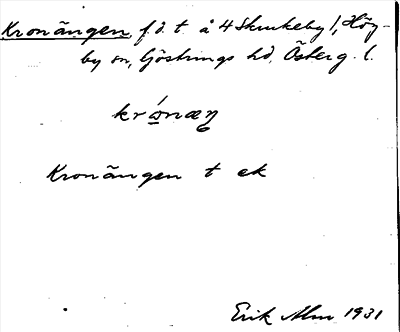 Kronängen, f.d. t. å 4 Skrukeby 1, Hög-
by sn, Göstrings hd, Österg. l.
Kronängen t ek
Erik Alm 1931